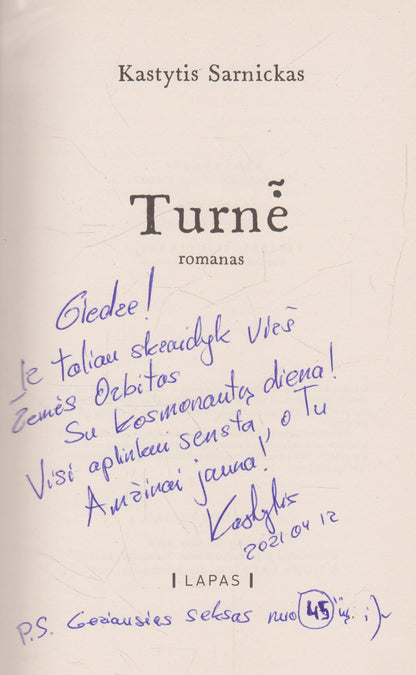 Kastytis Sarnickas
Turnė̃
romanas
Giedre!
Ir toliau skraidyk virš
Žemės Orbitos
Su kosmonautų diena!
Visi aplinkui sensta, o Tu
Amžinai jauna!
Kastytis
2021 04 12
| LAPAS |
P.S. Geriausias seksas nuo 45 ių. ;)~